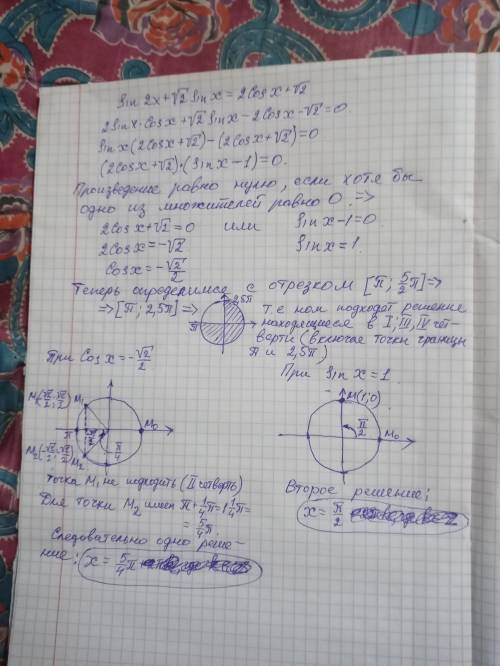 sin 2x + √2 sin x = 2cos x + √2
2 sin x · cos x + √2 sin x − 2cos x − √2 = 0
sin x (2cos x + √2) − (2cos x + √2) = 0
(2cos x + √2) · (sin x − 1) = 0.
Произведение равно нулю, если хотя бы
одно из множителей равно 0. =>
2cos x + √2 = 0 или sin x − 1 = 0
2cos x = −√2 sin x = 1.
cos x = −√2/2
Теперь определимся с отрезком [π; 5/2 π] =>
=> [π; 2,5π] =>
2,5π
π
т.е нам подходят решения
находящиеся в I, III, IV чет-
верти (включая точки границы
π и 2,5π)
При cos x = −√2/2
M₁(−√2/2; √2/2) M₁
π
M₀
π/4
M₂(−√2/2; −√2/2)
M₂
точка M₁ не подходить (II четверть)
Для точки M₂ имеем π + 1/4 π = 1 1/4 π =
= 5/4 π
Следовательно одно реше-
ние: x = 5/4 π
При sin x = 1
M(1; 0)
π/2
M₀
Второе решение:
x = π/2